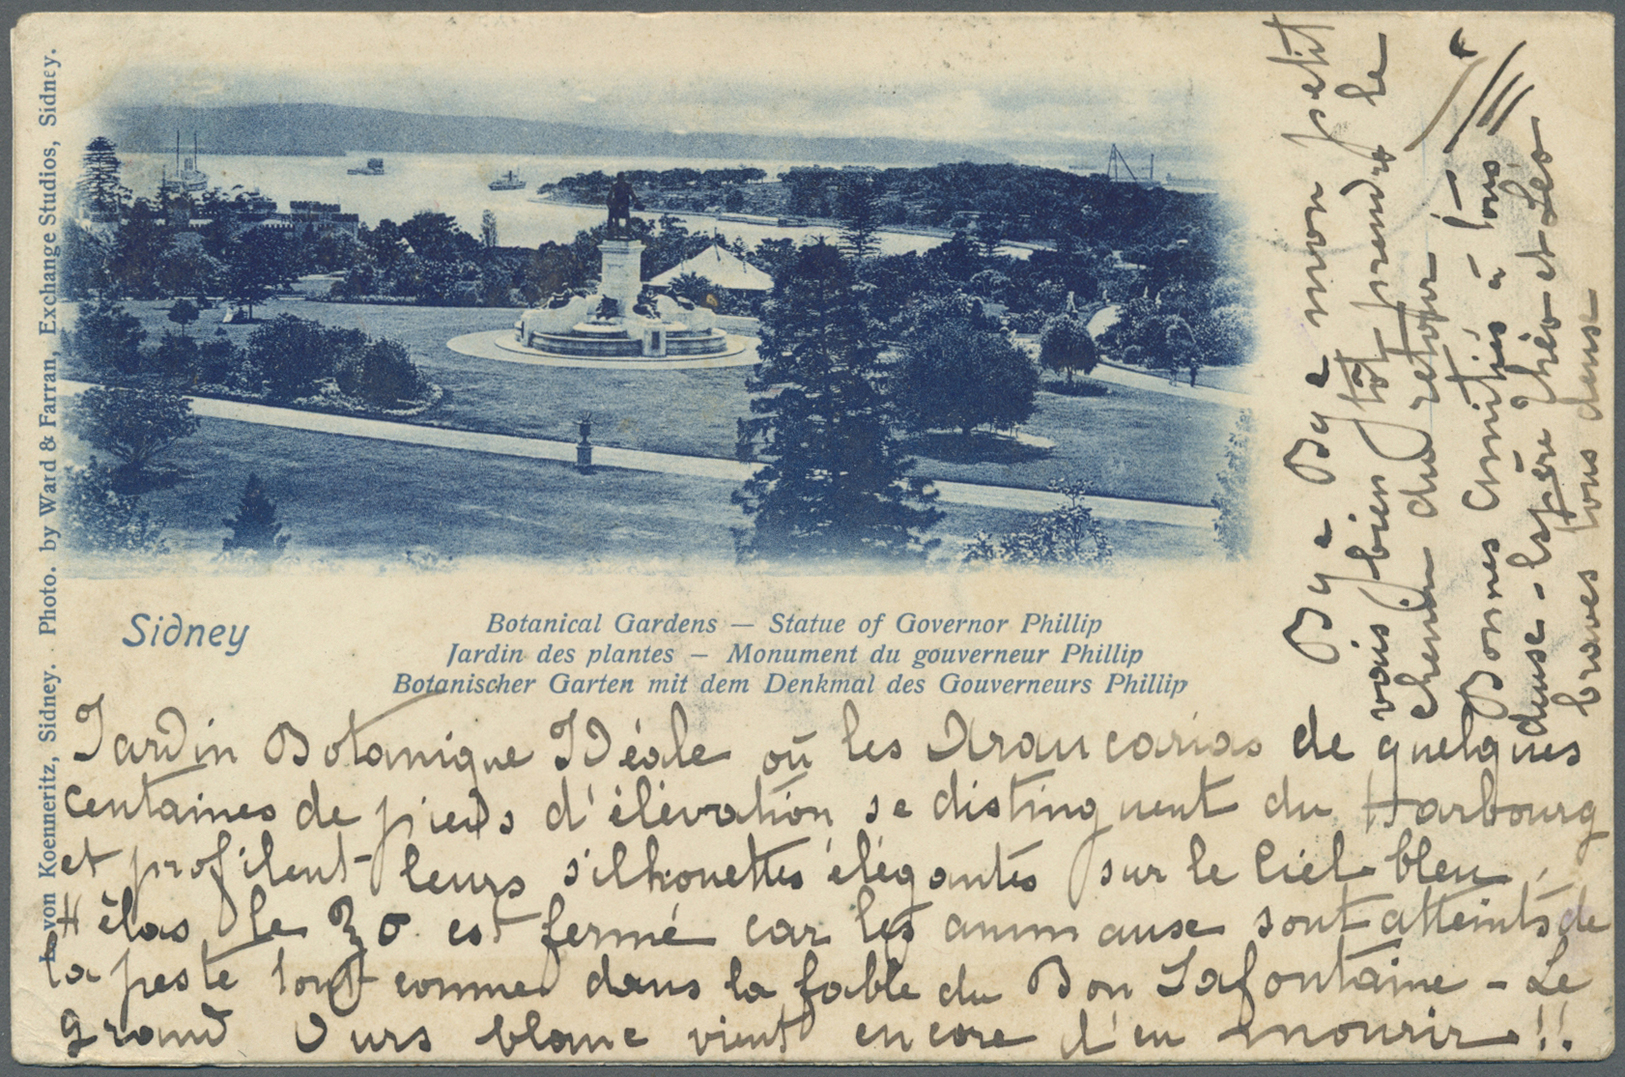 L. von Koenneritz, Sidney. Photo. by Ward & Farran, Exchange Studios, Sidney.
Sidney
Botanical Gardens — Statue of Governor Phillip
Jardin des plantes — Monument du gouverneur Phillip
Botanischer Garten mit dem Denkmal des Gouverneurs Phillip
Jardin Botanique Idéale où les Araucarias de quelques
centaines de pieds d'élévation se distinguent du Harbourg
et profilent leurs silhouettes élégantes sur le Ciel bleu,
Hélas le Zo est fermé car les animause sont atteints de
la peste tout comme dans la fable du Bon Lafontaine - Le
grand Ours blanc vient encore d'en mourir !!
Bye Bye mon petit
vais bientôt prendre le
chemin du retour
Bonnes Amitiés à tous
deuse - espère Théo et Léo
braves tous deuse